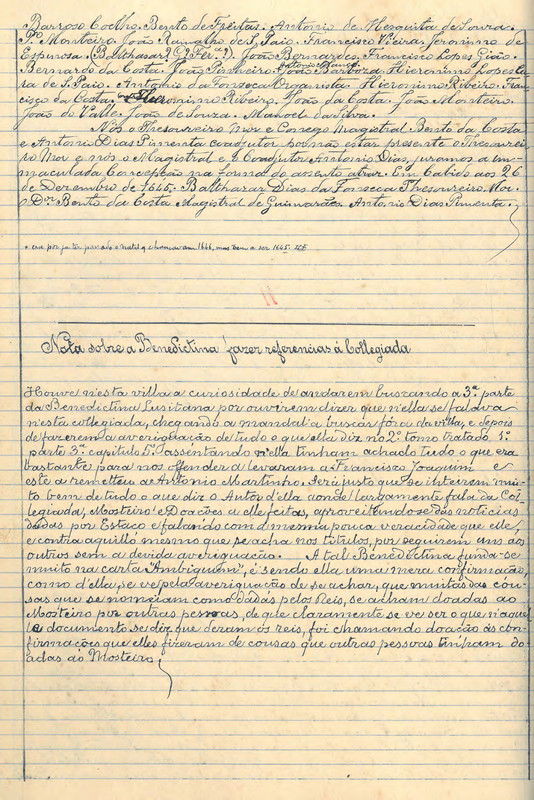 Barroso Coelho. Bento de Freitas. Antonio de Mesquita de Souza.
P.e Monteiro. João Ramalho de S. Paio. Francisco Vieira. Jeronimo de
Espinosa. (Balthasar G.l Fer.a). João Bernardes. Francisco Lopes Gião.
Bernardo da Costa. João Pinheiro. João Barbosa. Hieronimo Lopes Ca
sa de S. Paio. Antonio da Fonseca Organista. Hieronimo Ribeiro. Fran-
cisco da Costa. Hieronimo Ribeiro. João da Costa. João Monteiro.
João do Valle. João de Souza. Manoel da Silva.
Nós o Thesoureiro Mor e Conego Magistral Bento da Costa
e Antonio Dias Pimenta coadjutor por não estar presente o Thesourei-
ro Mor e nós o Magistral e o Coadjutor Antonio Dias, juramos a Im-
maculada Conceição na forma do assento atraz. Em Cabido aos 26
de Dezembro de 1645. Balthazar Dias da Fonseca Thesoureiro Mor.
o Dr. Bento da Costa Magistral de Guimarães. Antonio Dias Pimenta.
era por já ter passado o natal q chamavam 1646, mas vem a ser 1645.
Nota sobre a Benedictina fazer referencias á Collegiada
Houve n'esta villa a curiosidade de andarem buscando a 3.ª parte
da Benedictina Lusitana por ouvirem dizer que n'ella se falava
n'esta collegiada, chegando a mandal'a buscar fóra da villa, e depois
de fazerem a averiguação de tudo o que ella diz no 2.º tomo tratado 1.º
parte 3.ª capitulo 5.º assentando n'ella tinham achado tudo o que era
bastante para nos offender a levaram a Francisco Joaquim e
este a remetteu a Antonio Martinho. Será justo que se inteirem mui-
to bem de tudo o que diz o Autor d'ella aonde largamente fala da Col-
legiada, Mosteiro e Doações a elle feitas, aproveitando-se das noticias
dadas por Estaço e falando com a mesma pouca veracidade que elle,
e contra aquillo mesmo que se acha nos titulos, por seguirem uns aos
outros sem a devida averiguação. A tal Benedictina funda-se
muito na carta "Ambiguum", e sendo ella uma mera confirmação,
como d'ella se ve pela averiguação de se achar, que muitas das cou-
sas que se nomeiam como dadas pelos Reis, se acham doadas ao
Mosteiro por outras pessoas, de que claramente se ve ser o que n'aquel-
le documento se diz que deram os reis, foi chamando doação ás con-
firmações que elles fizeram de cousas que outras pessoas tinham do-
adas ao Mosteiro.